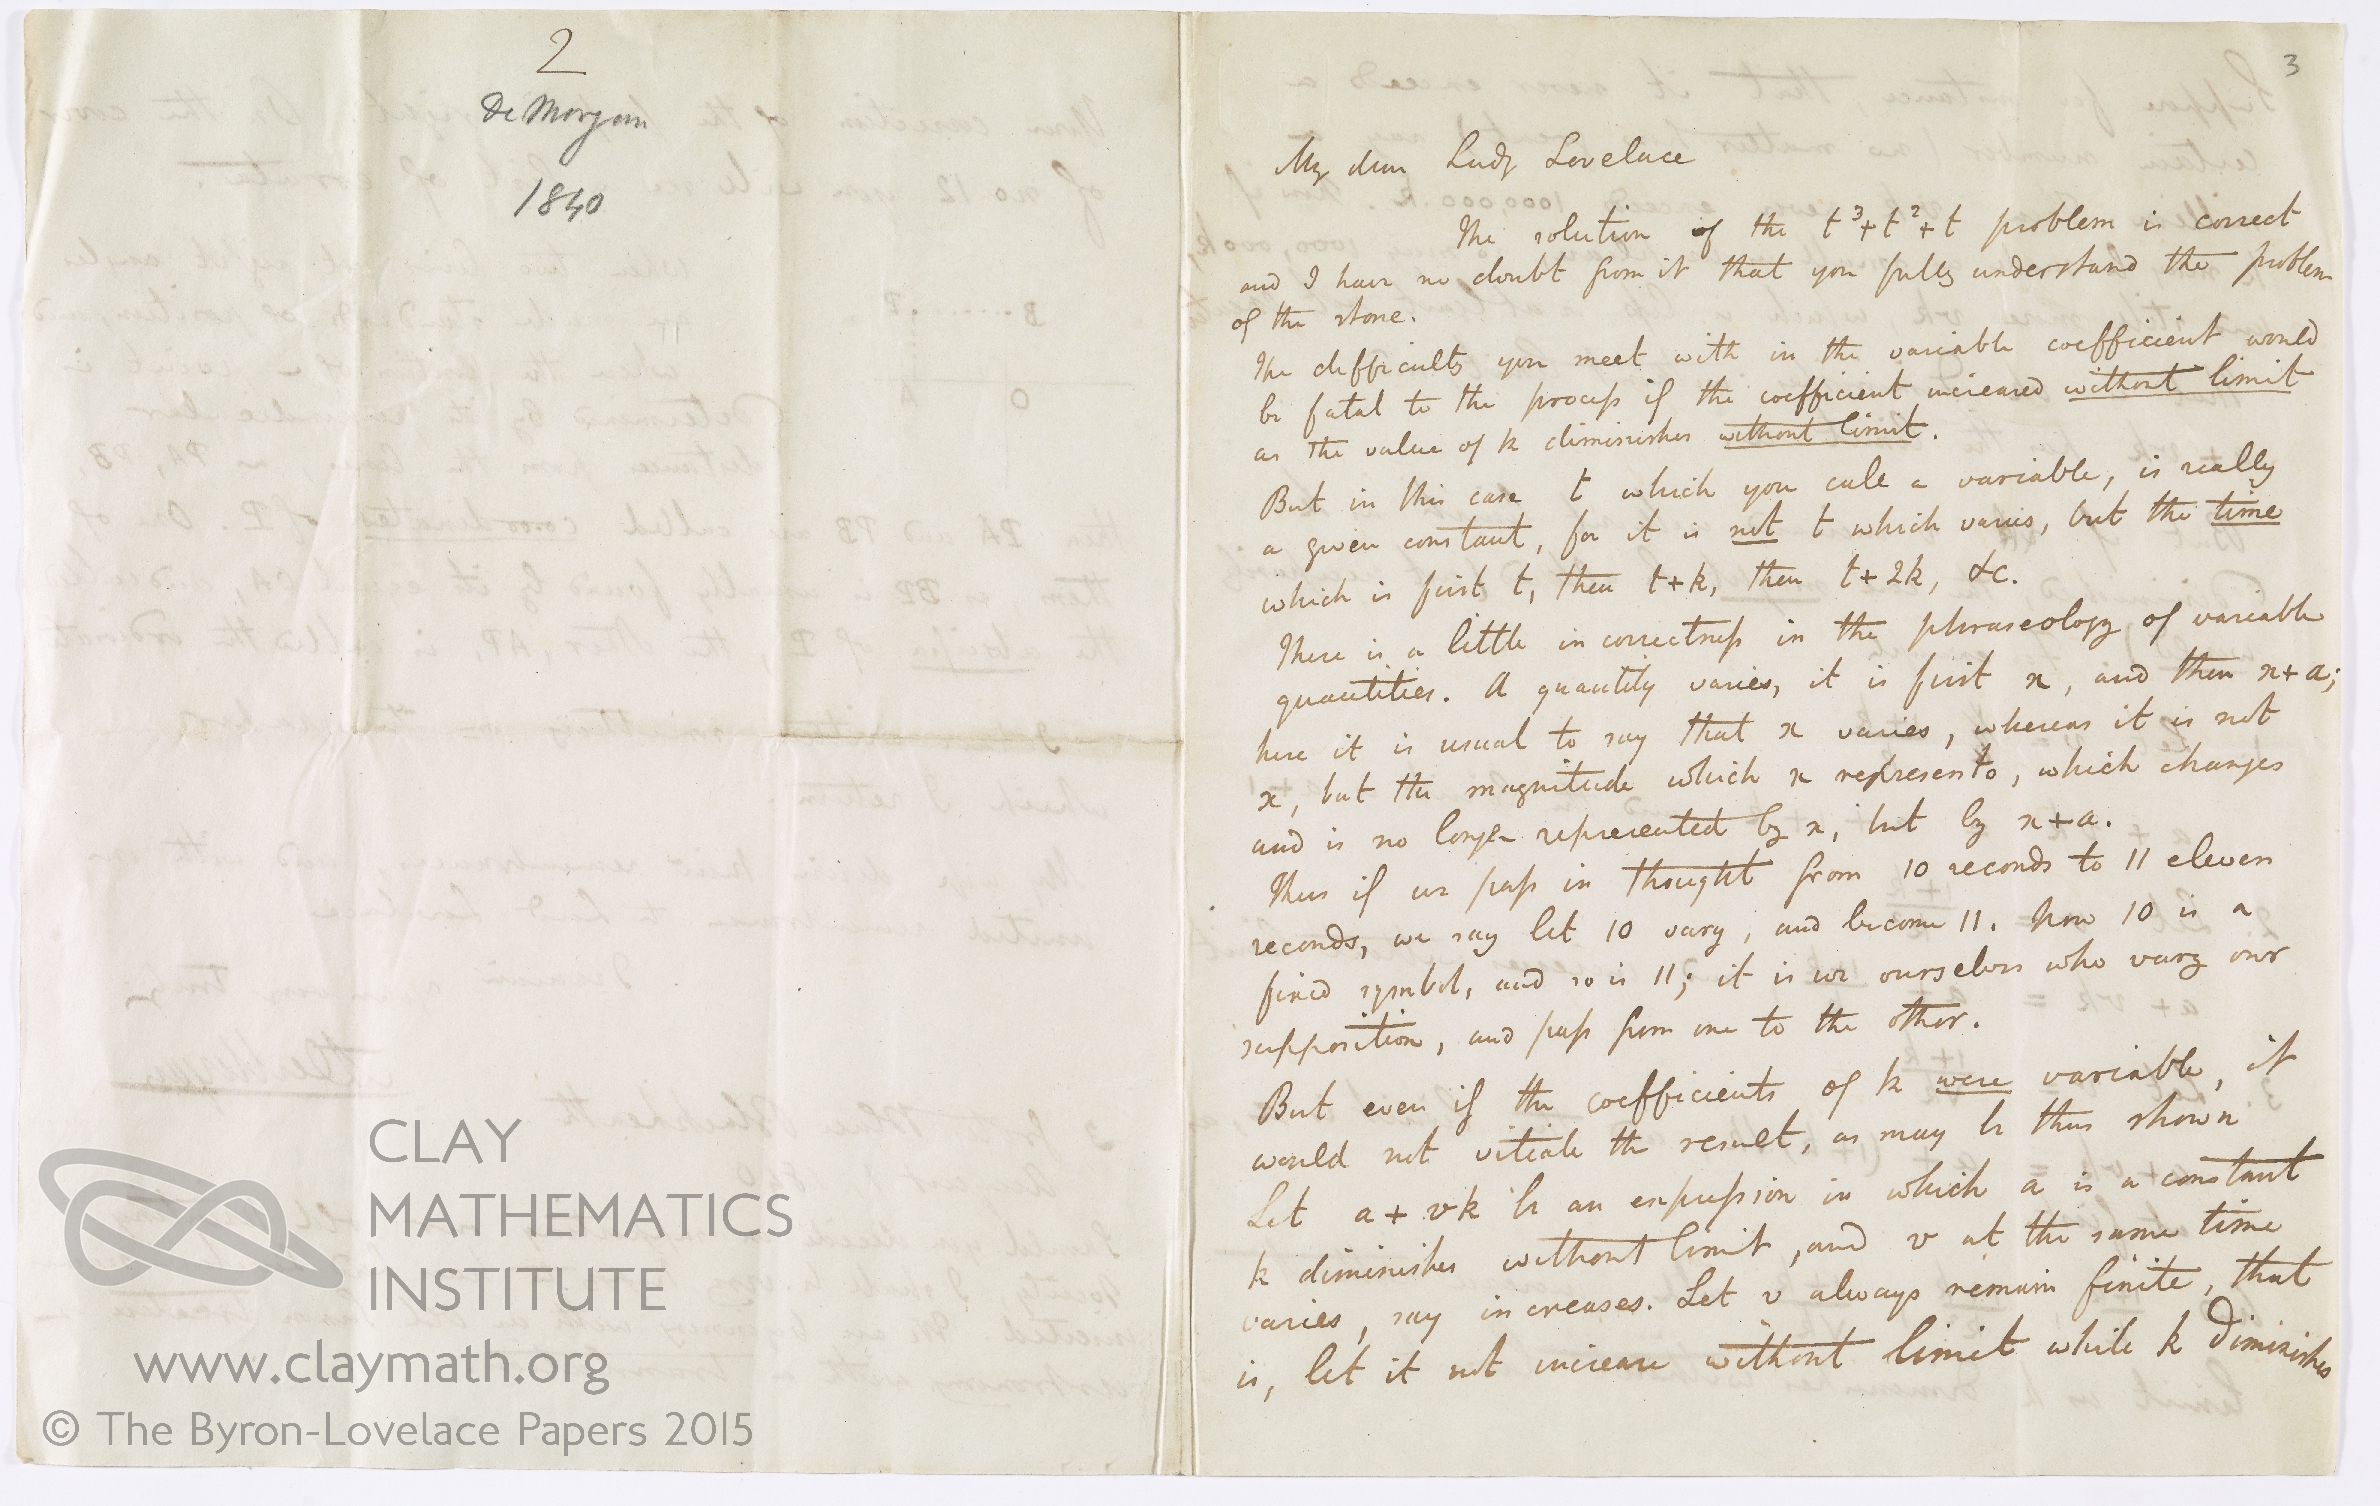 2
De Morgan
1840
3
My dear Lady Lovelace
The solution of the t³+t²+t problem is correct
and I have no doubt from it that you fully understand the problem
of the stone.
The difficulty you meet with in the variable coefficient would
be fatal to the process if the coefficient increased without limit
as the value of k diminishes without limit.
But in this case t which you call a variable, is really
a given constant, for it is not t which varies, but the time
which is first t, then t+k, then t+2k, &c.
There is a little incorrectness in the phraseology of variable
quantities. A quantity varies, it is first x, and then x+a;
here it is usual to say that x varies, whereas it is not
x, but the magnitude which x represents, which changes
and is no longer represented by x, but by x+a.
Thus if we pass in thought from 10 seconds to 11 eleven
seconds, we say let 10 vary, and become 11. Now 10 is a
fixed symbol, and so is 11; it is we ourselves who vary our
supposition, and pass from one to the other.
But even if the coefficients of k were variable, it
would not vitiate the result, as may be thus shown
Let a + vk be an expression in which a is a constant
k diminishes without limit, and v at the same time
varies, say increases. Let v always remain finite, that
is, let it not increase without limit while k diminishes
CLAY
MATHEMATICS
INSTITUTE
www.claymath.org
© The Byron-Lovelace Papers 2015